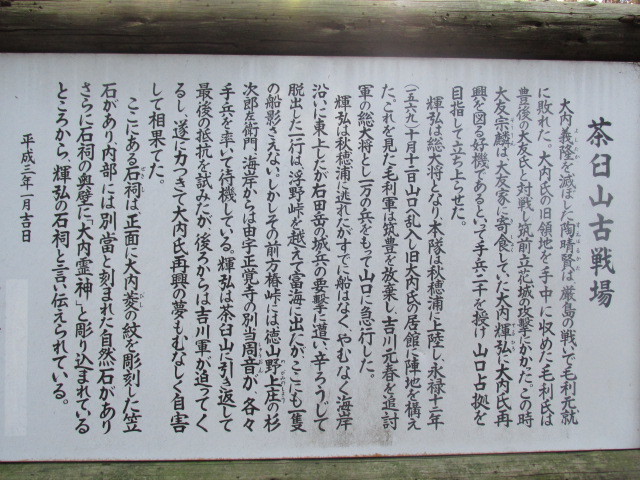 茶臼山古戦場
大内義隆を滅ぼした陶晴賢は、厳島の戦いで毛利元就
に敗れた。大内氏の旧領地を手中に収めた毛利氏は
豊後の大友氏と対戦し筑前立花城攻撃にかかった。この時
大友宗麟は、大友家に寄食していた大内輝弘に、大内氏再
興を図る好機であるといって手兵二千を授け、山口占拠を
目指して立ち上らせた。
輝弘は総大将となり、本隊は秋穂浦に上陸し、永禄十二年
(一五六九)十月十二日山口へ乱入し旧大内氏の居館に陣地を構え
た。これを見た毛利軍は筑豊を放棄し、吉川元春を追討
軍の総大将とし一万の兵をもって山口に急行した。
輝弘は秋穂浦に逃れたがすでに船はなく、やむなく海岸
沿いに東上したが右田岳の城兵の要撃に遭い、辛ろうじて
脱出した一行は、浮野峠を越えて富海に出たが、ここも一隻
の船影さえない。しかしその前方椿峠には、徳山野上庄の杉
次郎左衛門、海岸からは由宇正覚寺の別当周音が、各々
手兵を率いて待機している。輝弘は茶臼山に引き返して
最後の抵抗を試みたが、後ろからは吉川軍が迫ってく
るし、遂に力つきて大内氏再興の夢もむなしく自害
して相果てた。
ここにある石祠は正面に大内菱の紋を彫刻した笠
石があり、内部には別當と刻まれた自然石があり
さらに石祠の奥壁に「大内霊神」と彫り込まれている
ところから、輝弘の石祠と言い伝えられている。
平成三年一月吉日